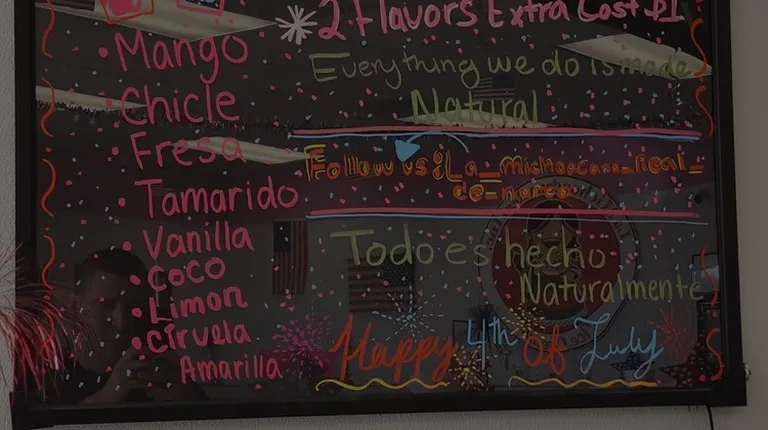 Mango
Chicle
Fresa
Tamarido
Vanilla
Coco
Limon
Ciruela
Amarilla
2 Flavors Extra Cost $1
Everything we do is made
Natural
Follow us : La_michoacana_Real_
de_
Todo es hecho
Naturalmente
Happy 4th Of July